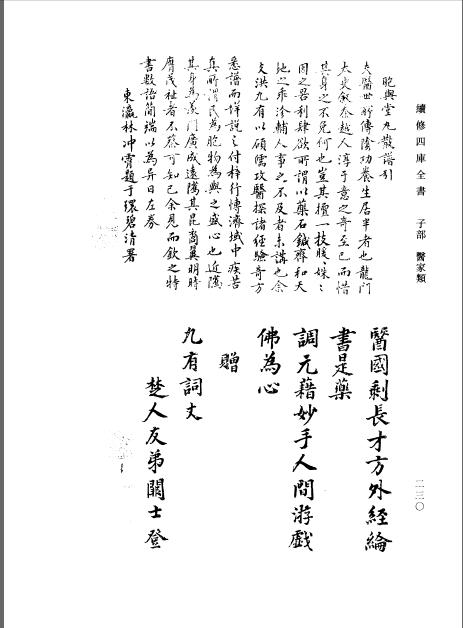 續修四庫全書 子部 醫家類
二三〇
胞與堂丸散譜引
夫醫世所傳陰功養生居半者也龍門
太史敘秦越人淳于意之奇至已而惜
其身之不免何也豈其擅一技暖〻姝〻
因之召利肆欲所謂以藥石鍼齊和天
地之乖沴輔人事之不及者未講也余
友洪九有以碩儒攻醫探諸經驗奇方
悉譜而詳說之付梓行博濟域中疾苦
真所謂民為胞物為與之盛心也近隲
其身為羨門廣成遠隲其昆裔翼明時
膺茂祉者不蔡可知已余見而欽之特
書數語簡端以為異日左券
東瀛林冲霄題于環碧清署
醫國剩長才方外經綸
書是藥
調元藉妙手人間游戲
佛為心
贈
九有詞丈
楚人友弟關士登